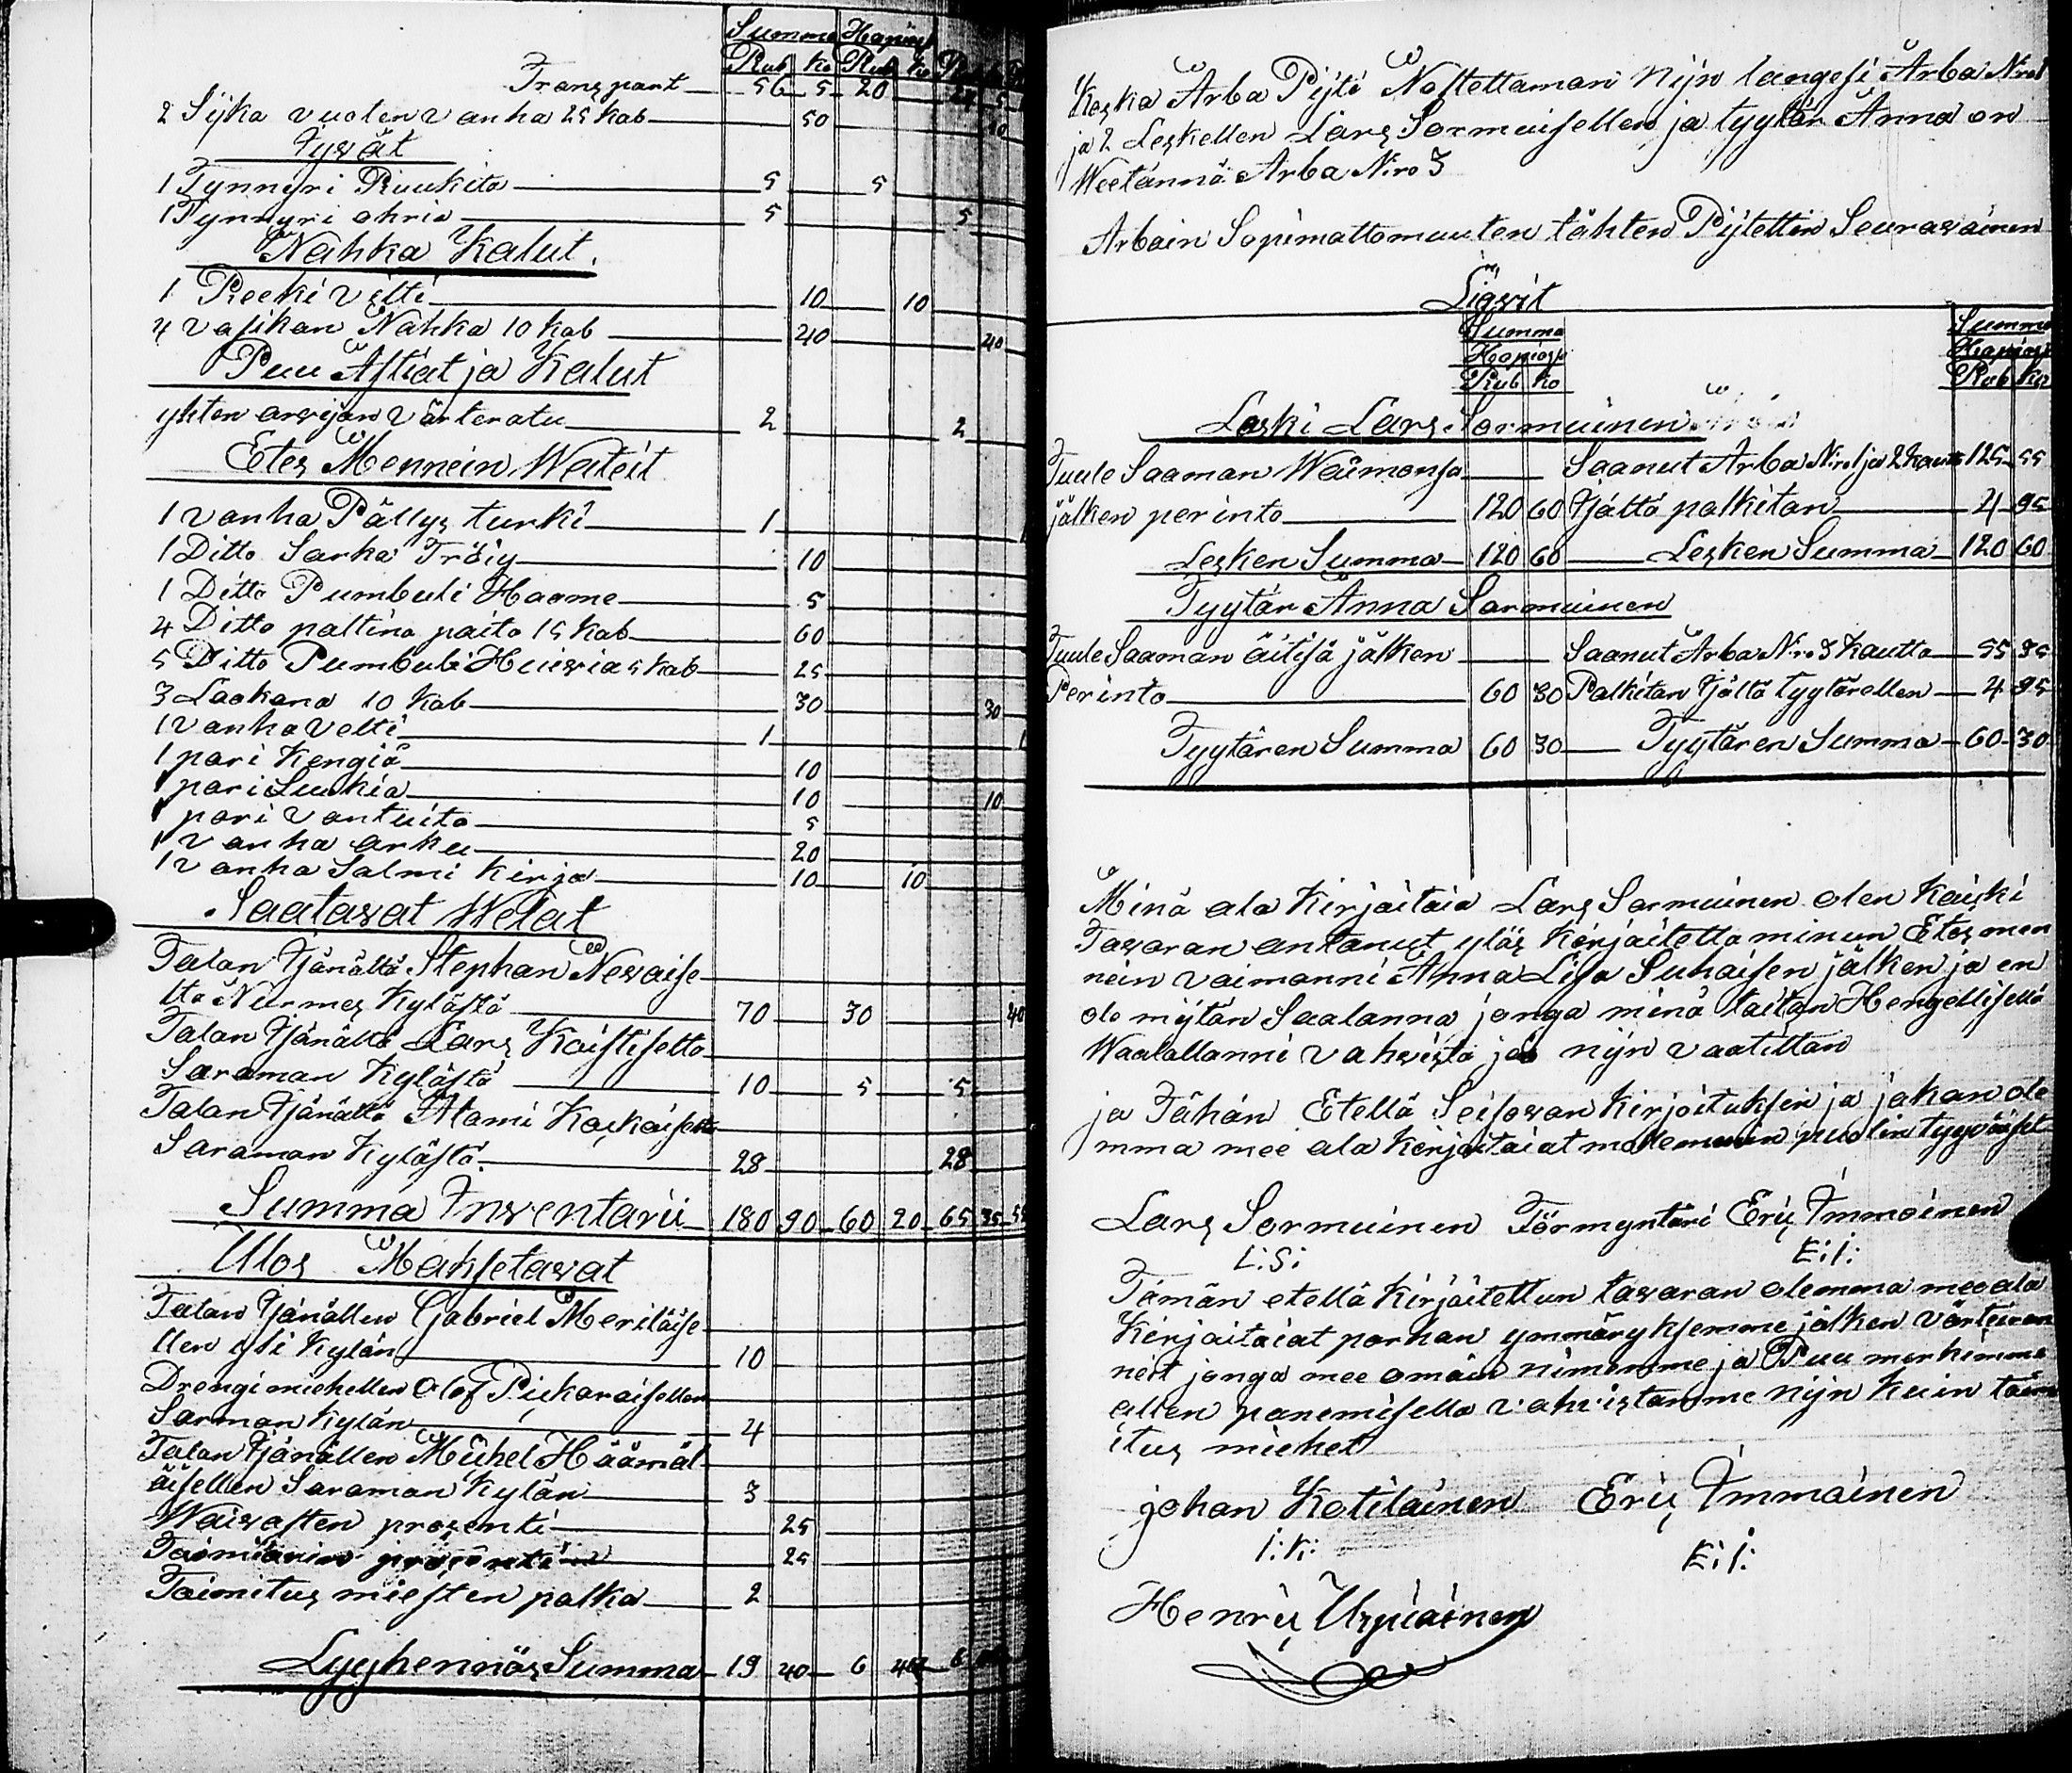 Summa Hopiasa
Rub ko Rub ko
Transpart 56 5 20
2 Syka vuoten vanha 25 kab 50
Jyvät
1 Tynnyri Ruukita 5 5
1 Tynnyri ohria 5 5
Nahka Kalut.
1 Reeki velti 10 10
4 vasikan Nahka 10 kab 40 40
Puu Astiat ja Kalut
yhten arvijan Värteratu 2 2
Etes Mennein Wateit
1 vanha Pällys turki 1
1 Ditto Sarka Tröiy 10
1 Ditto Pumbuli Haame 5
4 Ditto paltina paita 15 kab 60
5 Ditto Pumbuli Huivia 5 kab 25
3 Laakana 10 kab 30 30
1 vanha velti 1
1 pari Kengiä 10
1 pari Sukia 10 10
1 pari Vantuita 5
1 vanha arku 20
1 vanha Salmi kirja 10 10
Saatavat Welat
Talan Isänältä Stephan Nevaise
lta Nurmes Kylästä 70 30 40
Talan Isänältä Lars Kaistiselta
Saraman Kylästä 10 5 5
Talan Isänältä Atami Koskaiselta
Saraman Kylästä. 28 28
Summa Inventarii 180 90 60 20 65 35 55
Ulos Maksetavat
Talan Isänällen Gabriel Meriläise
llen ysi Kylän 10
Drengi miehellen Olof Piekaraisellen
Sarman Kylän 4
Talan Isänällen Mickel Häämäl
äisellen Saraman Kylän 3
Waivasten prosenti 25
prosenti 25
Taimitus miesten palka 2
Lyyhennös Summa 19 40 6 40 6
Koska Arba Pijti Nostettaman Nijn langesi Arba Nro 1
ja 2 Leskellen Lars Sormuisellen ja tyytär Anna on
Weetännä Arba Nro 3
Arbain Sopimattomuuten tähten Pijtettin Seuravainen
Ligvit
Summa Summa
Hopiasa Hopiasa
Rub ko Rub ko
Leski Lars Sormuinen
Tuule Saaman Waimonsa Saanut Arba Nro 1 ja 2 kautta 125 55
jälken perinto 120 60 Tjältä palkitan 4 95
Lesken Summa 120 60 Lesken Summa 120 60
Tyytär Anna Sarmuinen
Tuule Saaman äitisä jälken Saanut Arba Nro 3 kautta 55 35
Perinto 60 30 Palkitan Tjältä tyytärellen 4 95
Tyytären Summa 60 30 Tyytären Summa 60 30
Minä ala Kirjaitaia Lars Sarmuinen olen Kaiski
Tavaran antanut ylös Kirjaitetta minun Etes men
nein vaimanni Anna Lisa Suhaisen jälken ja en
ole mytän Saalanna jonga minä taitan Hengellisellä
Waalallanni vahvista jos nijn vaatittan
ja Tähän Etellä Seisovan Kirjoituksin ja jakan ole
mma mee ala Kirjaitaiat mallemmin puolin tyyväiset
Lars Sormuinen Förmyntäri Eric Immoinen
L:S: E:I:
Tämän etellä Kirjaitettun tavaran olemma mee ala
Kirjaitaiat parhan ymmäryksemme jälken värteiran
net jonga mee omain nimemme ja Puu merkimme
allen panemisella vahvistamme nijn kuin taim
itus miehet
johan Kotilainen Eric Immainen
I:K: E:I:
Henric Urpiainen